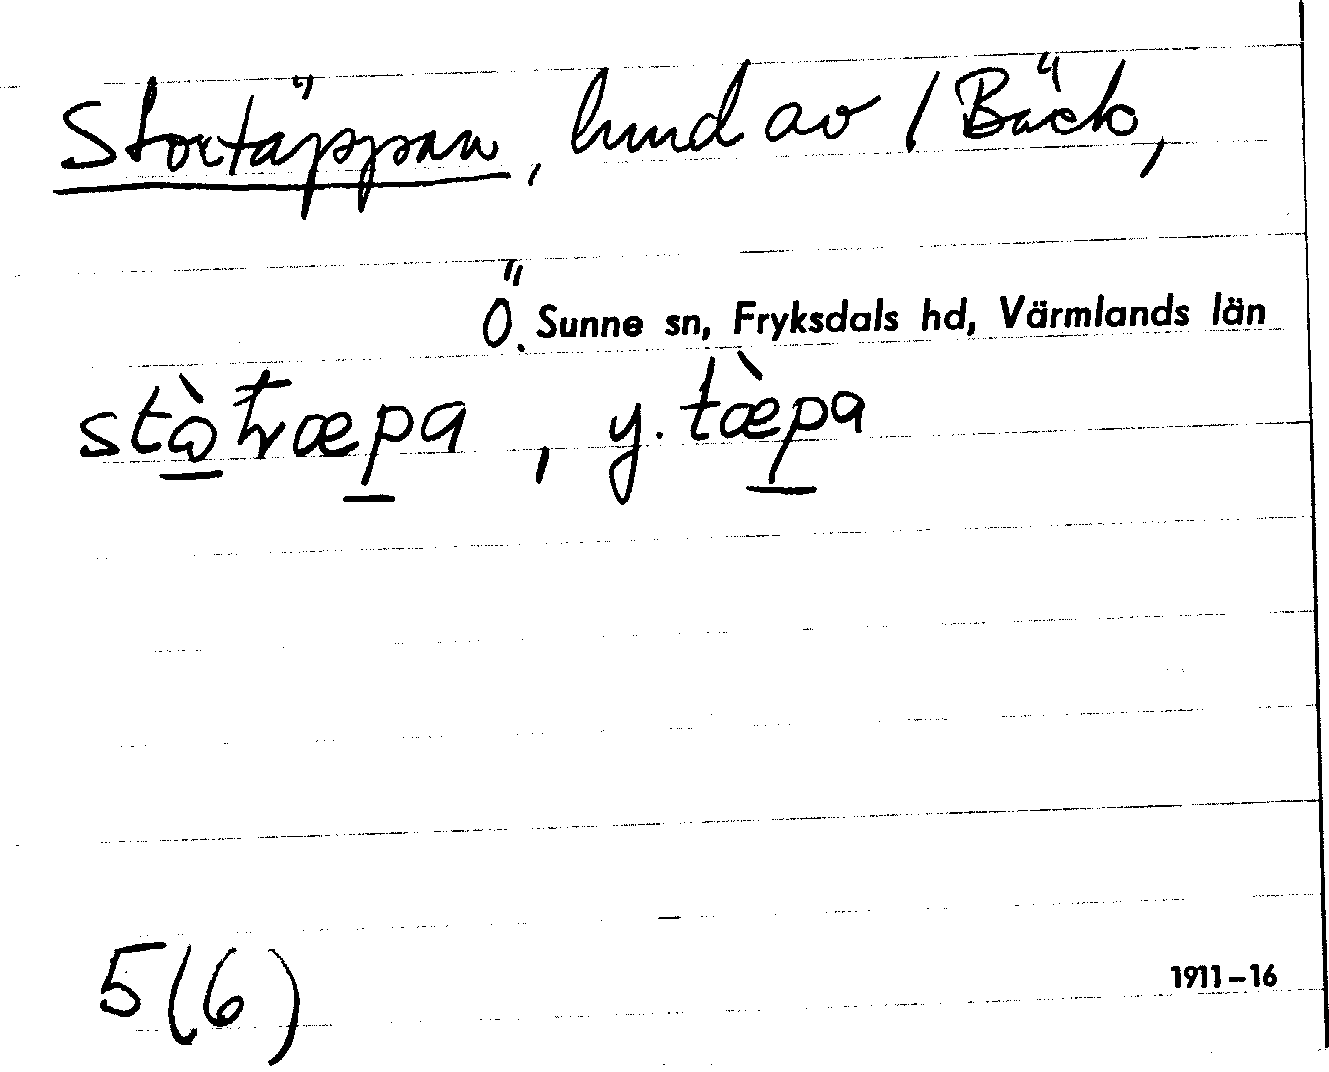 Stortäppan, hmd av / Bäck,
Ö. Sunne sn, Fryksdals hd, Värmlands län
, y. tæ̀pa
5(6)
1911–16